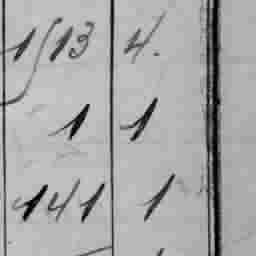 1513 4.
1 1
141 1